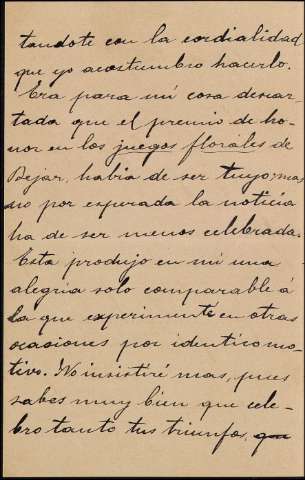 tandote con la cordialidad
que yo acostumbro hacerlo.
Era para mi cosa descar-
tada que el premio de ho-
nor en los juegos florales de
Bejar, habia de ser tuyo; mas
no por esperada la noticia
ha de ser menos celebrada.
Esta produjo en mi una
alegria solo comparable á
la que experimente en otras
ocasiones por identico mo-
tivo. No insistiré mas, pues
sabes muy bien que cele-
bro tanto tus triunfos, que